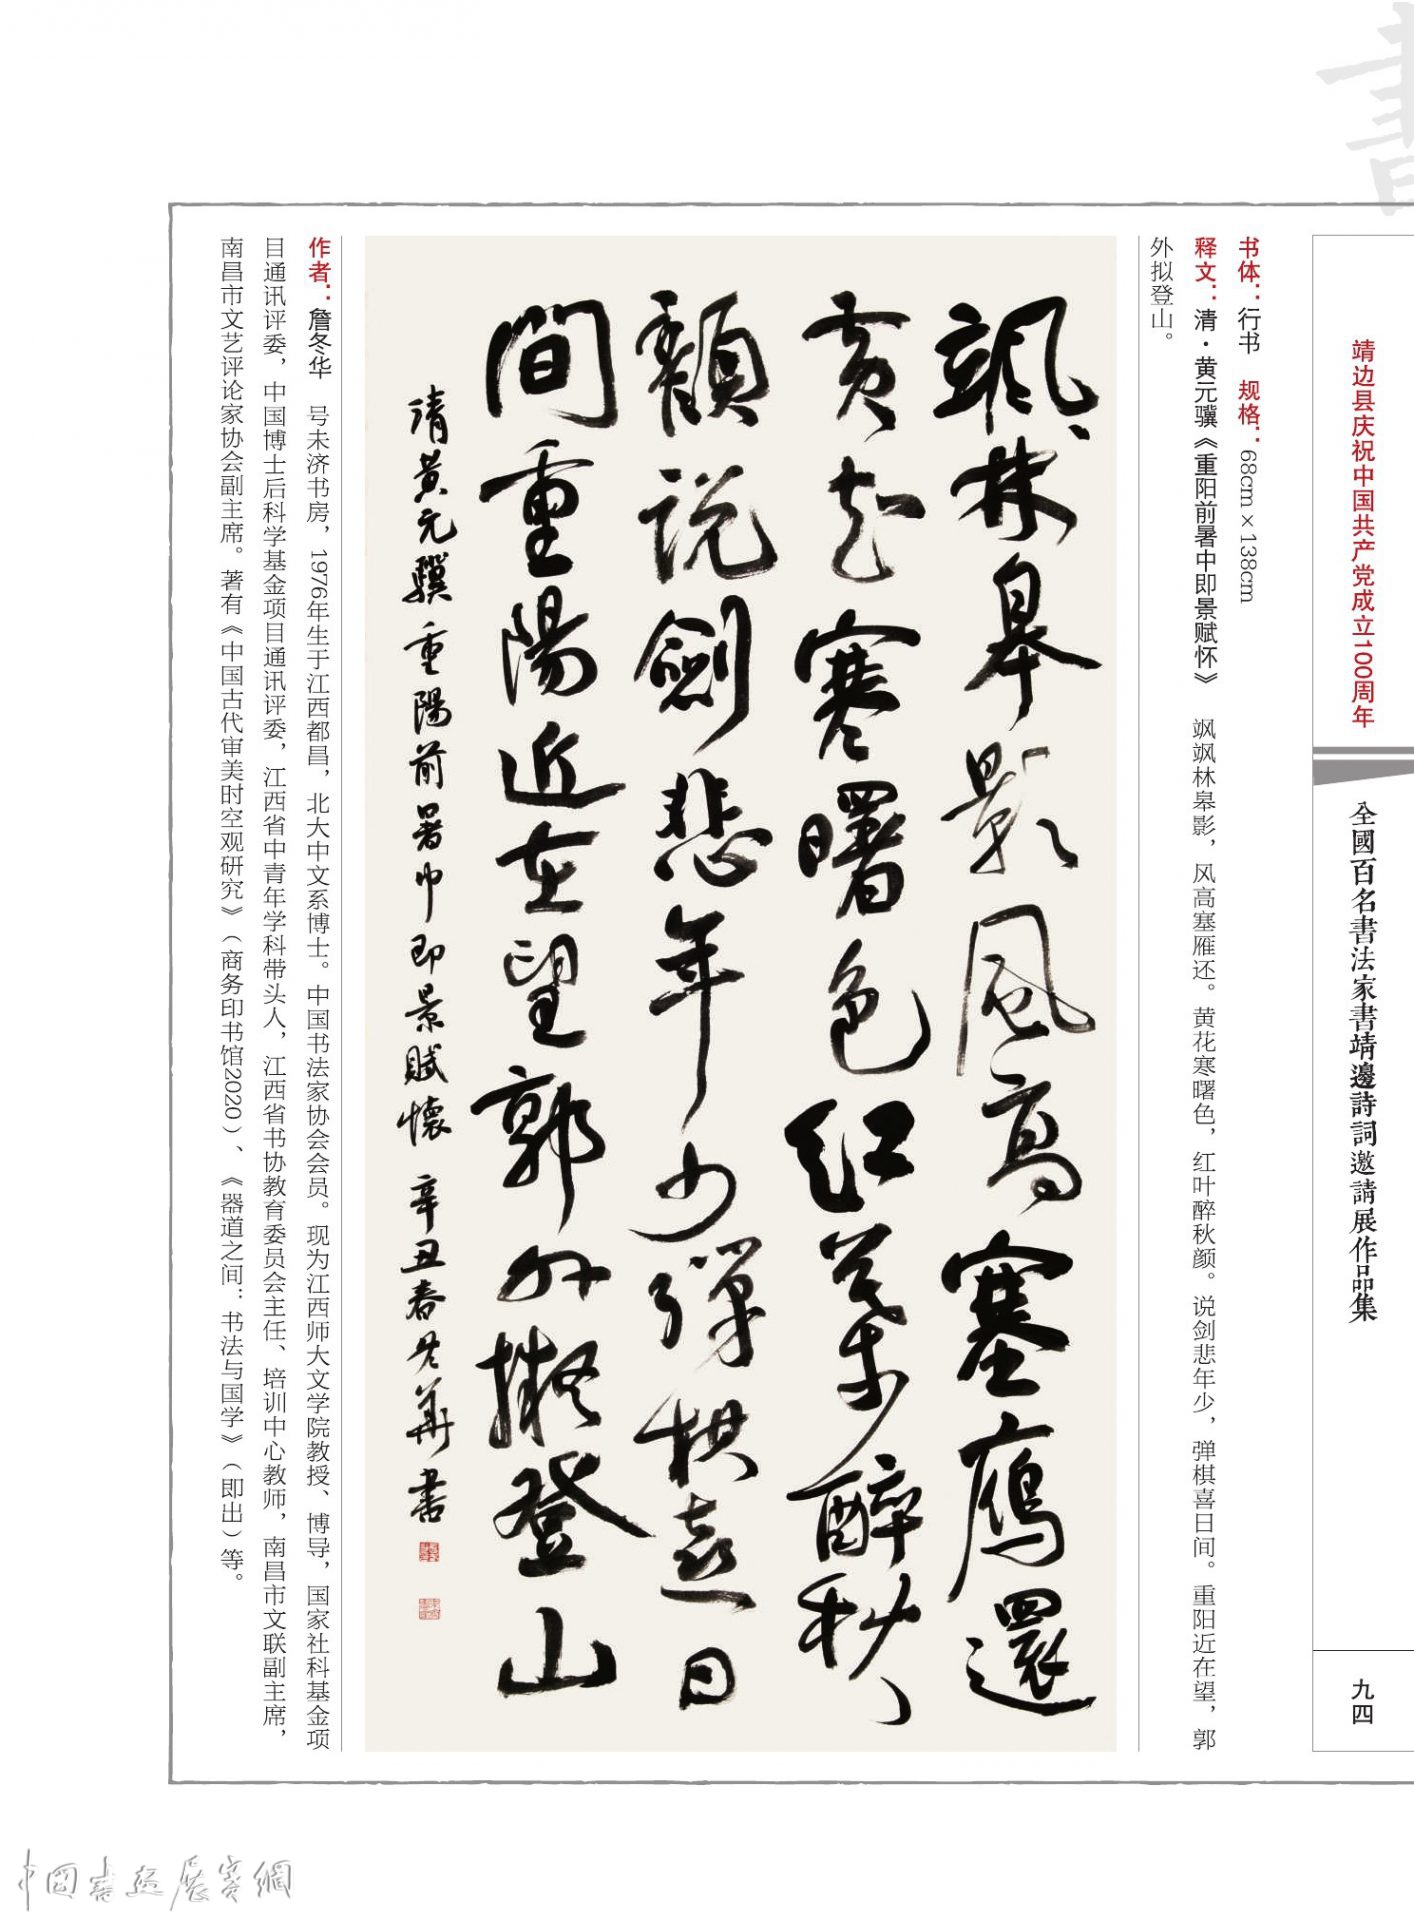 書
靖边县庆祝中国共产党成立100周年
全國百名書法家書靖邊詩詞邀請展作品集
九四
书体：行书　规格：68cm×138cm
释文：清·黄元骥《重阳前暑中即景赋怀》　飒飒林皋影，风高塞雁还。黄花寒曙色，红叶醉秋颜。说剑悲年少，弹棋喜日间。重阳近在望，郭
外拟登山。
颯〻林皋影風高塞鴈還
黄花寒曙色红葉醉秋
顏说劍悲年少彈棋喜日
間重陽近在望郭外擬登山
清黄元驥重陽前暑中即景賦懷辛丑春冬華書
作者：詹冬华　号未济书房，1976年生于江西都昌，北大中文系博士。中国书法家协会会员。现为江西师大文学院教授、博导，国家社科基金项
目通讯评委，中国博士后科学基金项目通讯评委，江西省中青年学科带头人，江西省书协教育委员会主任、培训中心教师，南昌市文联副主席，
南昌市文艺评论家协会副主席。著有《中国古代审美时空观研究》（商务印书馆2020）、《器道之间：书法与国学》（即出）等。
中國書画展賽網